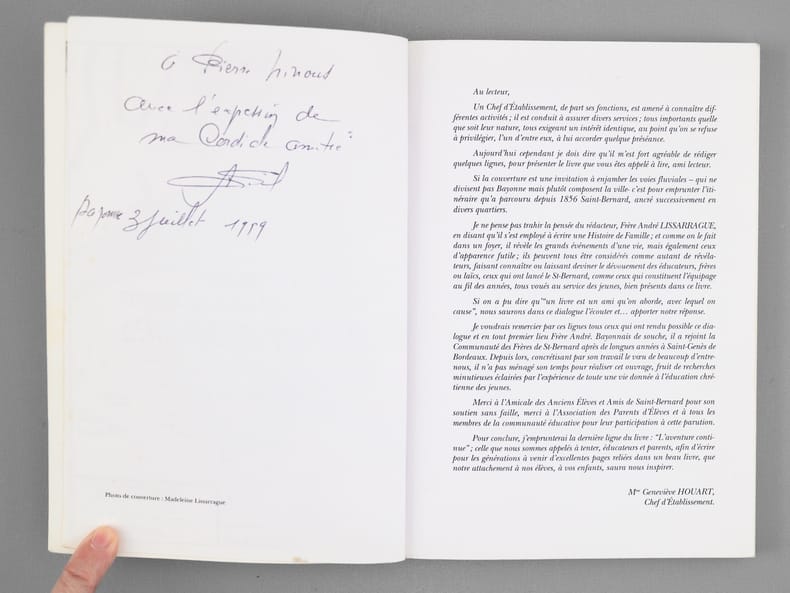 à Pierre
avec l'expression de
ma Cordiale amitié
Bayonne 3 juillet 1989
Photo de couverture : Madeleine Lissarrague
Au lecteur,
Un Chef d'Établissement, de part ses fonctions, est amené à connaître dif-
férentes activités ; il est conduit à assurer divers services ; tous importants quelle
que soit leur nature, tous exigeant un intérêt identique, au point qu'on se refuse
à privilégier, l'un d'entre eux, à lui accorder quelque préséance.
Aujourd'hui cependant je dois dire qu'il m'est fort agréable de rédiger
quelques lignes, pour présenter le livre que vous êtes appelé à lire, ami lecteur.
Si la couverture est une invitation à enjamber les voies fluviales – qui ne
divisent pas Bayonne mais plutôt composent la ville- c'est pour emprunter l'iti-
néraire qu'a parcouru depuis 1856 Saint-Bernard, ancré successivement en
divers quartiers.
Je ne pense pas trahir la pensée du rédacteur, Frère André LISSARRAGUE,
en disant qu'il s'est employé à écrire une Histoire de Famille ; et comme on le fait
dans un foyer, il révèle les grands événements d'une vie, mais également ceux
d'apparence futile ; ils peuvent tous être considérés comme autant de révéla-
teurs, faisant connaître ou laissant deviner le dévouement des éducateurs, frères
ou laïcs, ceux qui ont lancé le St-Bernard, comme ceux qui constituent l'équipage
au fil des années, tous voués au service des jeunes, bien présents dans ce livre.
Si on a pu dire qu'"un livre est un ami qu'on aborde, avec lequel on
cause", nous saurons dans ce dialogue l'écouter et... apporter notre réponse.
Je voudrais remercier par ces lignes tous ceux qui ont rendu possible ce dia-
logue et en tout premier lieu Frère André. Bayonnais de souche, il a rejoint la
Communauté des Frères de St-Bernard après de longues années à Saint-Genès de
Bordeaux. Depuis lors, concrétisant par son travail le vœu de beaucoup d'entre-
nous, il n'a pas ménagé son temps pour réaliser cet ouvrage, fruit de recherches
minutieuses éclairées par l'expérience de toute une vie donnée à l'éducation chré-
tienne des jeunes.
Merci à l'Amicale des Anciens Élèves et Amis de Saint-Bernard pour son
soutien sans faille, merci à l'Association des Parents d'Élèves et à tous les
membres de la communauté éducative pour leur participation à cette parution.
Pour conclure, j'emprunterai la dernière ligne du livre : "L'aventure conti-
nue" ; celle que nous sommes appelés à tenter, éducateurs et parents, afin d'écrire
pour les générations à venir d'excellentes pages reliées dans un beau livre, que
notre attachement à nos élèves, à vos enfants, saura nous inspirer.
Mme Geneviève HOUART,
Chef d'Établissement.